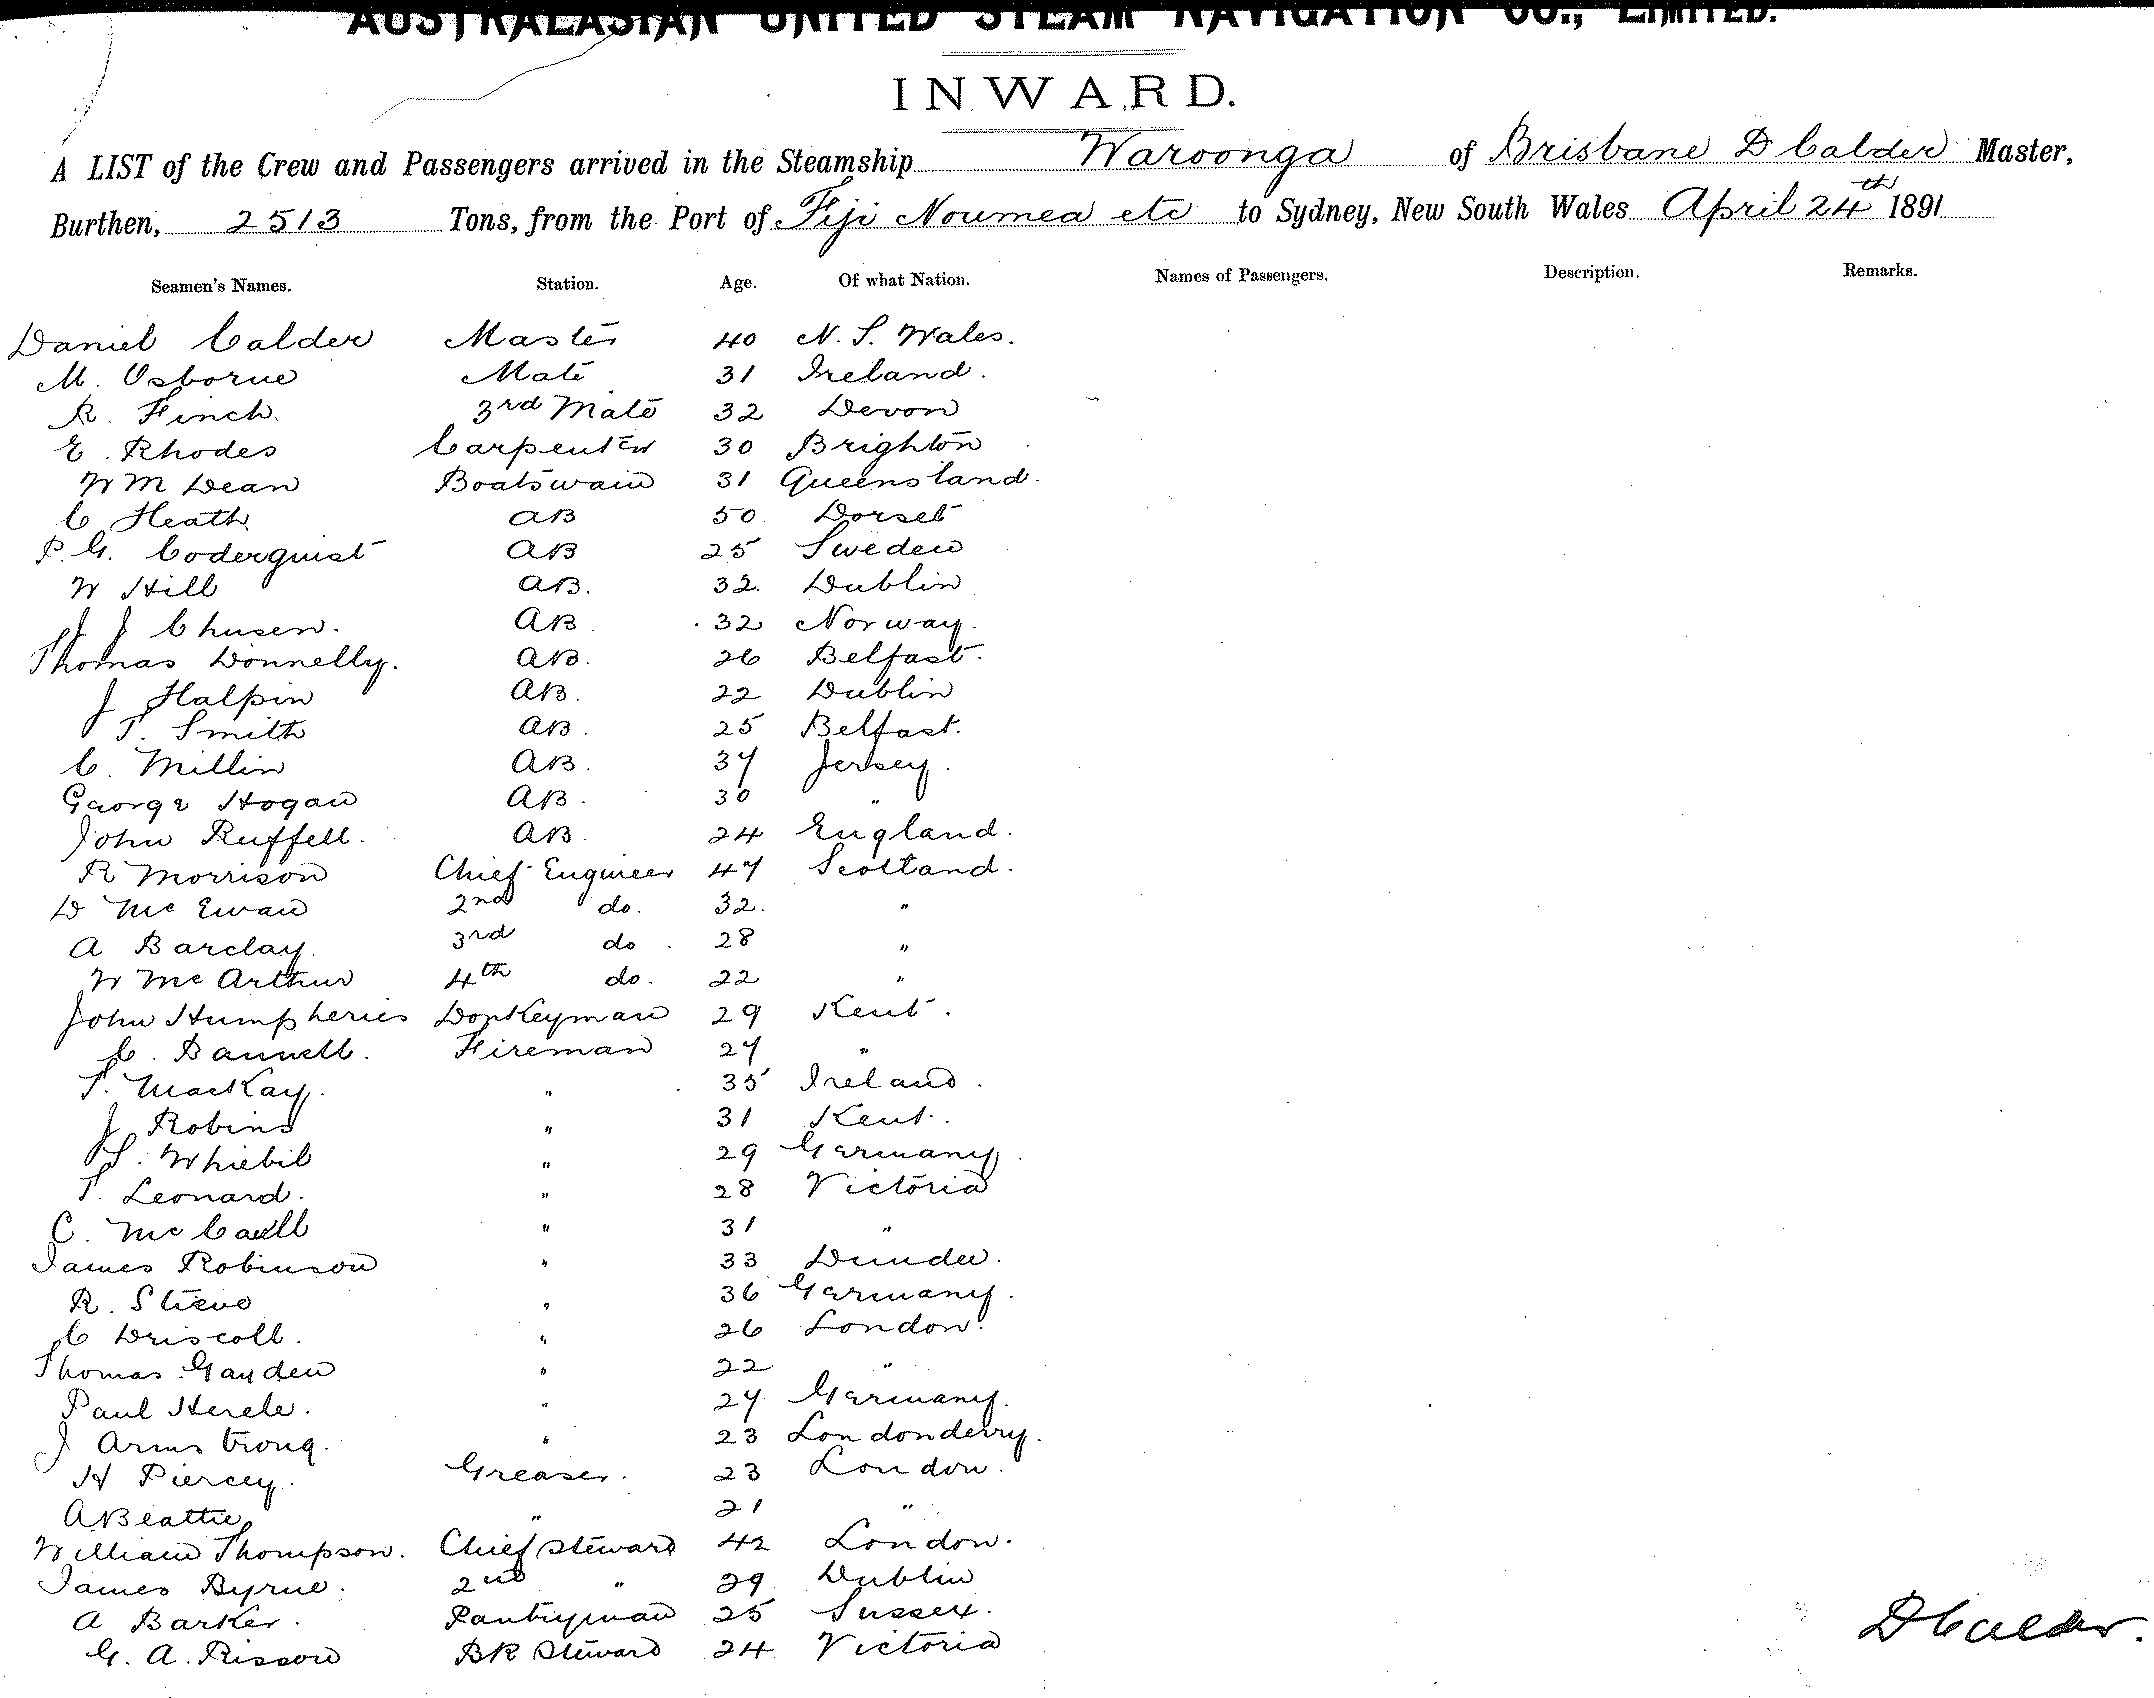 AUSTRALASIAN UNITED STEAM NAVIGATION CO., LIMITED.
INWARD.
A LIST of the Crew and Passengers arrived in the Steamship Waroonga of Brisbane D Calder Master,
Burthen, 2513 Tons, from the Port of Fiji Noumea etc to Sydney, New South Wales April 24th 1891
Seamen's Names. Station. Age. Of what Nation. Names of Passengers. Description. Remarks.
Daniel Calder Master 40 N. S. Wales.
M. Osborne Mate 31 Ireland.
R. Finch 3rd Mate 32 Devon
E. Rhodes Carpenter 30 Brighton
W M Dean Boatswain 31 Queensland.
C Heath AB 50 Dorset
P. G. Coderquist AB 25 Sweden
W Hill AB. 32. Dublin
J J Chusen. AB 32 Norway.
Thomas Donnelly. AB. 26 Belfast.
J Halpin AB. 22 Dublin
T. Smith AB. 25 Belfast.
C. Millin AB. 37 Jersey.
George Hogan AB. 30 "
John Ruffell. AB. 24 England.
R Morrison Chief Engineer 47 Scotland.
D McEwan 2nd do. 32. "
A Barclay. 3rd do. 28 "
W McArthur 4th do. 22 "
John Humpheries Donkeyman 29 Kent.
C. Bannell. Fireman 27 "
T. MacKay. " 35 Ireland.
J Robins " 31 Kent.
S. " 29 Germany.
T. Leonard. " 28 Victoria
C. " 31 "
James Robinson " 33 Dundee.
R. Stieve " 36 Germany.
C Driscoll. " 26 London.
Thomas Gayden " 22 "
Paul Herele. " 27 Germany.
J Armstrong. " 23 Londonderry.
H Piercey. Greaser. 23 London.
A Beattie " 21 "
William Thompson. Chief Steward 42 London.
James Byrne. 2nd " 29 Dublin
A Barker. Pantryman 25 Sussex.
G. A. Risson BR Steward 24 Victoria
D Calder.